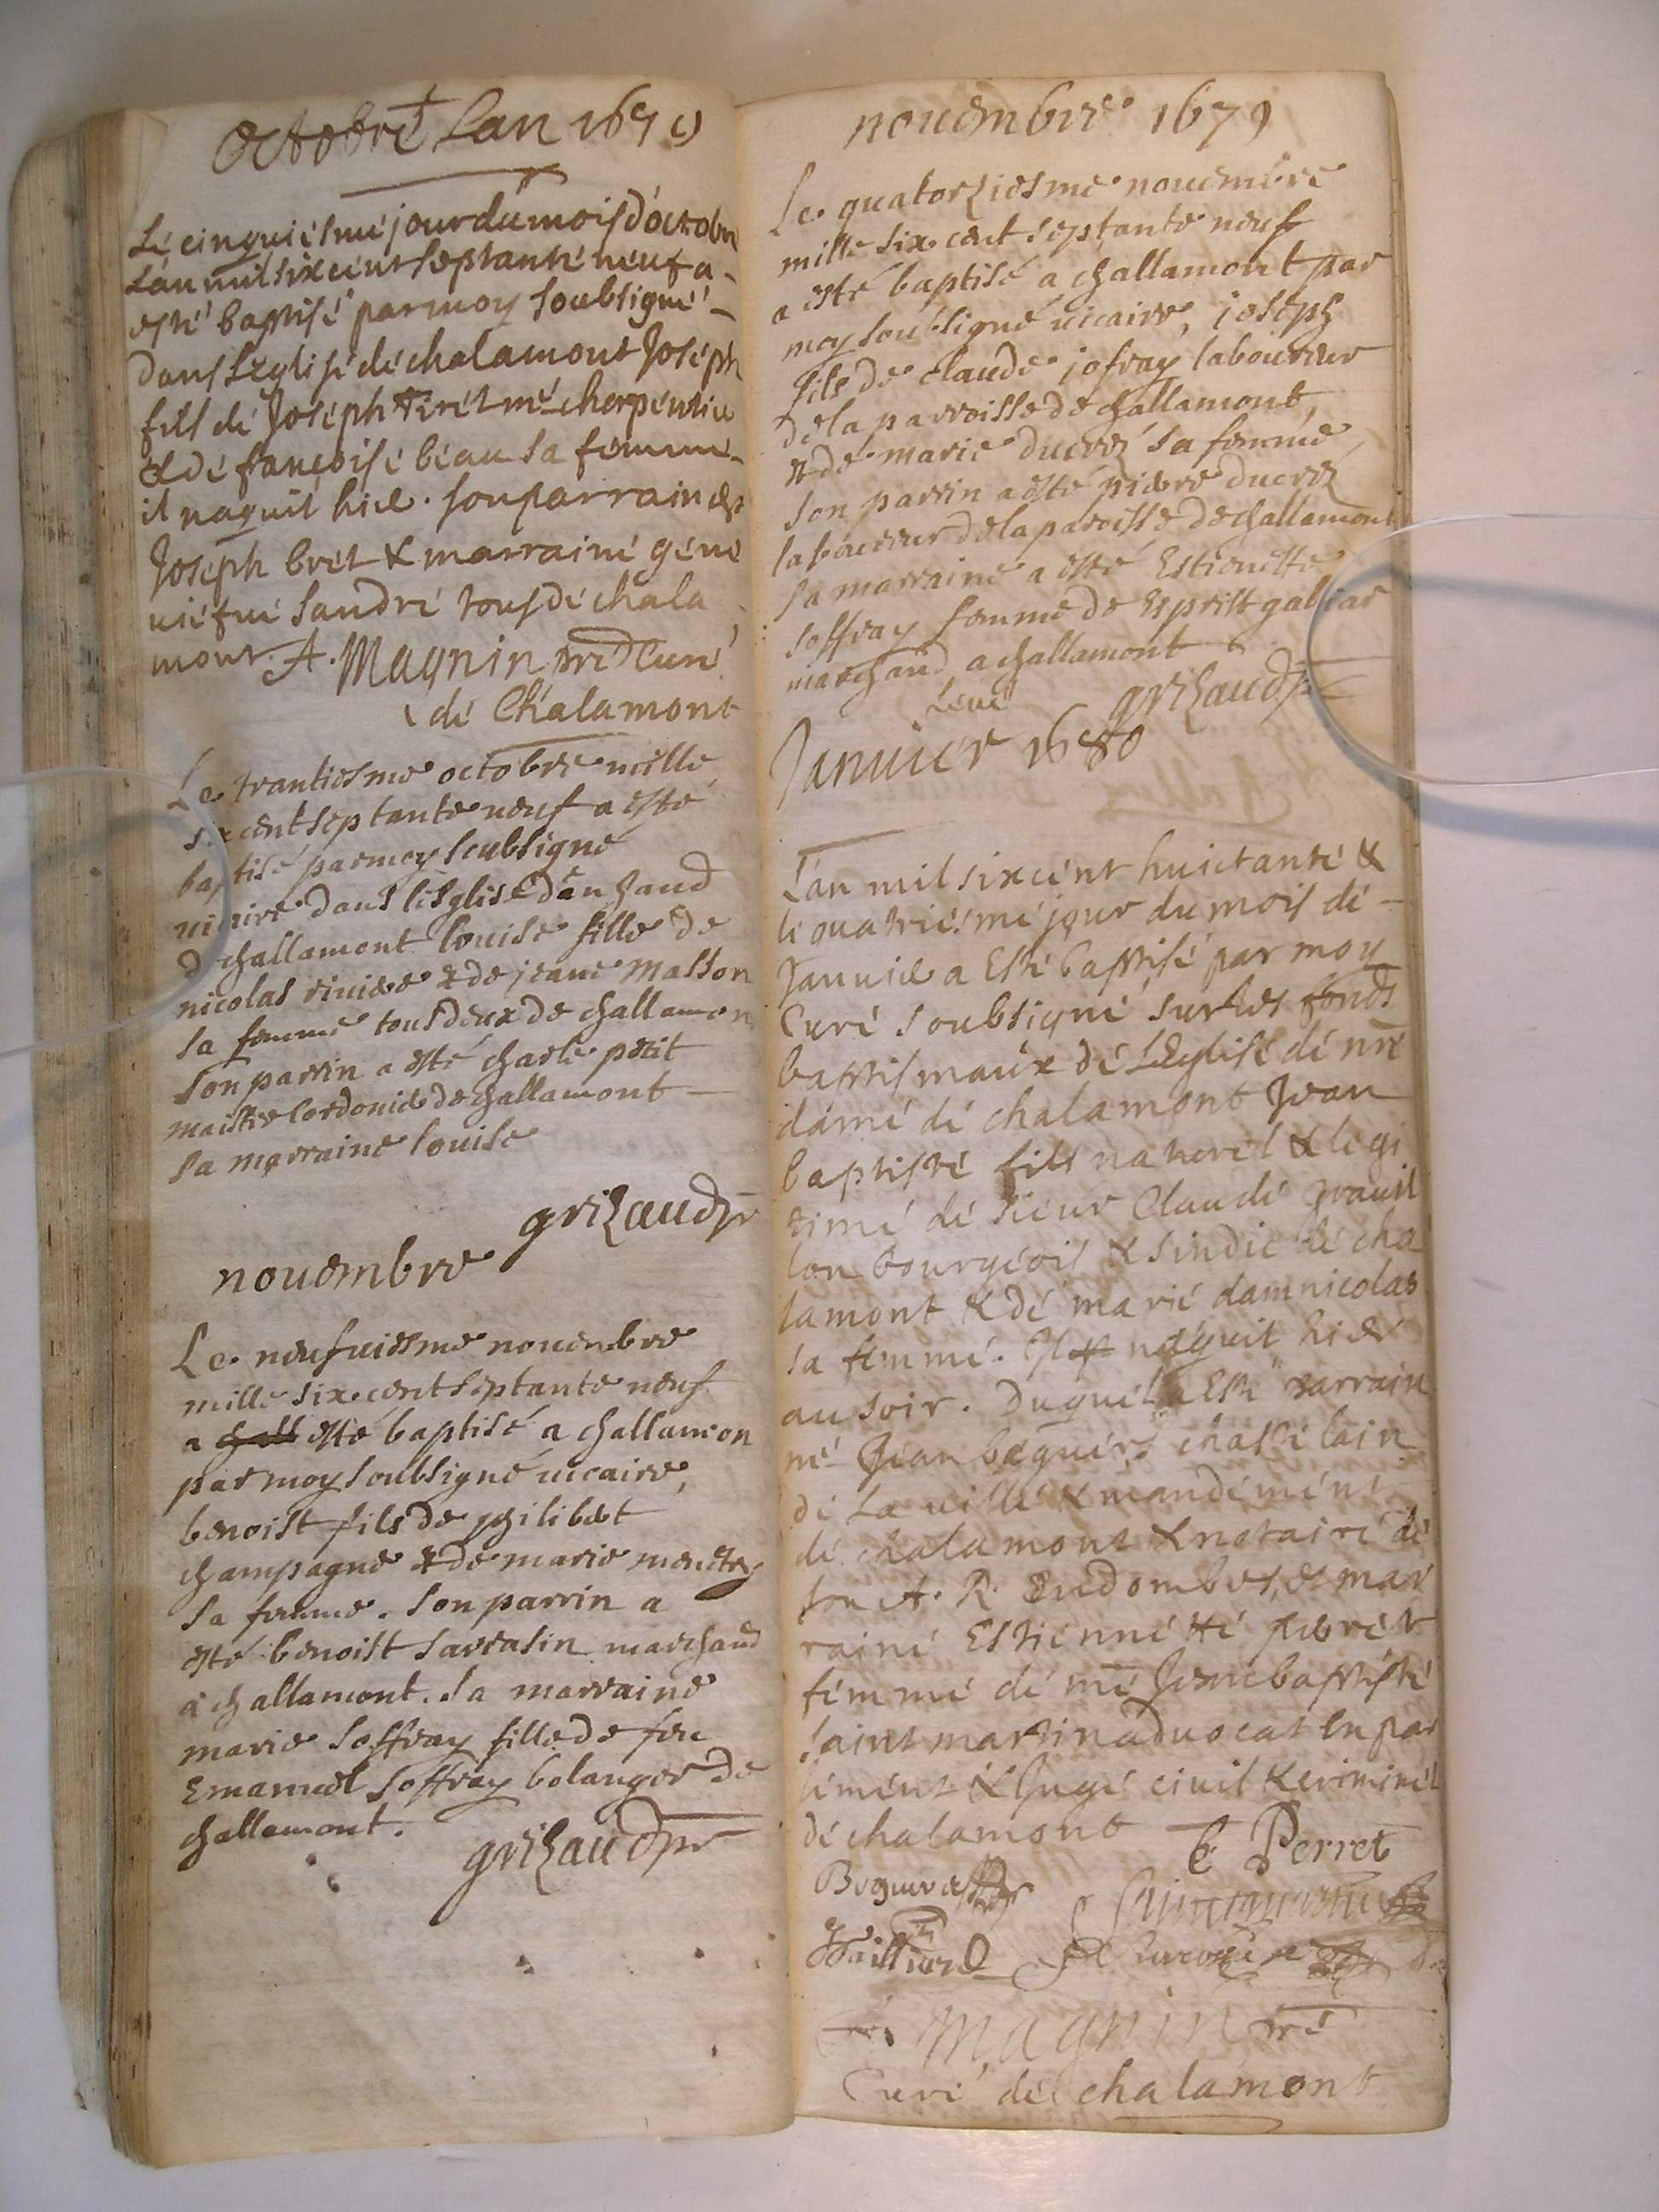 Octobre Lan 1679
Le cinquiesme jour du mois d'octobre
Lan mil six cent septante neuf a
esté baptisé par moy soubsigné
dans Leglise de chalamont Joseph
fils de Joseph tiret me cherpentie
& de françoise beau sa femme
il naquit hier. son parrain est
Joseph bret & marraine gene
uiefue Sandre tous de chala
mont. A. Magnin pre Curé
de Chalamont
Le trantiesme octobre mille
six cent septante neuf a esté
baptisé par moy soubsigné
uicaire dans l'esglise
d challamont louise fille de
nicolas riuiere & de jeane masson
sa femme tous deux de challamon
son parrin a esté charle petit
maistre Cordonier de challamont
sa marraine louise
grizaud pr
nouembre
Le neufuiesme nouembre
mille six cent septante neuf
a chall esté baptisé a challamon
par moy soubsigné uicaire,
benoist fils de philibert
champagne & de marie
sa femme. son parrin a
esté benoist sarrasin marchand
a challamont. sa marraine
marie Soffray fille de feu
Emanuel Soffray bolanger de
challamont.
grizaud pr
nouembre 1679
Le quatorziesme nouembre
mille six cent septante neuf
a esté baptisé a challamont par
moy soubsigné uicaire, joseph
fils de claude jofray laboureur
de la parroisse de challamont,
& de marie ducroz sa femme
son parrin a esté pierre ducroz
laboureur de la paroisse de challamont
sa marraine a esté Estienette
soffray femme de Esprit galliar
marchand a challamont
Leué grizaud pr
Januier 1680
L'an mil six cent huictante &
le quatriesme jour du mois de
Januier a Esté baptisé par moy
Curé soubsigné sur les fonds
baptismaux de L'Eglise de nre
dame de chalamont Jean
baptiste fils naturel & legi
time de sieur Claude
lon bourgeois & sindic de cha
lamont & de marie damnicolas
sa femme. Il naquit hier
au soir. Duquel a Esté parrain
me Jean beguer chastelain
de La uille & mandement
de chalamont & notaire de
son A. R. En dombes, & mar
raine Estiennette perret
femme de me Jean baptiste
saint martin aduocat En par
lement & Juge ciuil & criminel
de chalamont E Perret
Saint martin
A. Magnin pre
Curé de chalamont